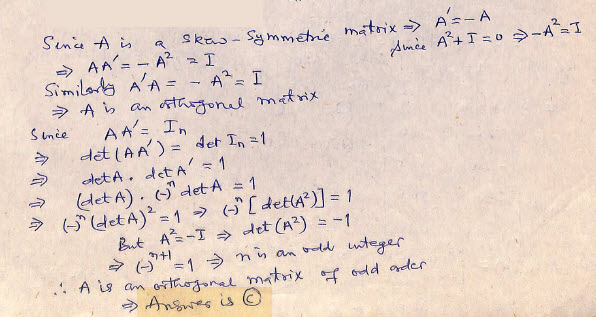 Sence A is a skew-Symmetric matrix ⇒ A′ = -A
⇒ AA′ = -A² = I since A²+I=0 ⇒ -A²=I
Similarly A′A = -A² = I
⇒ A is an orthogonal matrix
Since AA′ = Iₙ
⇒ det(AA′) = det Iₙ = 1
⇒ det A . det A′ = 1
⇒ (det A) . (-)ⁿ det A = 1
⇒ (-)ⁿ (det A)² = 1 ⇒ (-)ⁿ [det(A²)] = 1
But A² = -I ⇒ det(A²) = -1
⇒ (-)ⁿ⁺¹ = 1 ⇒ n is an odd integer
∴ A is an orthogonal matrix of odd order
⇒ Answer is Ⓒ